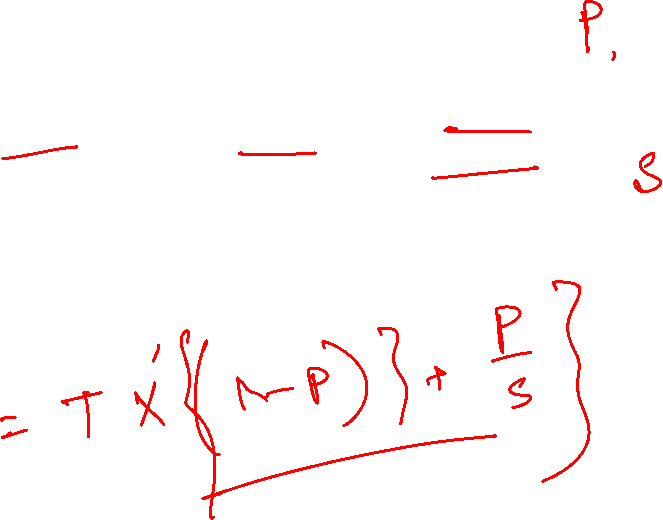 P,
— — = S
= T × {(1-P)} + P/S }